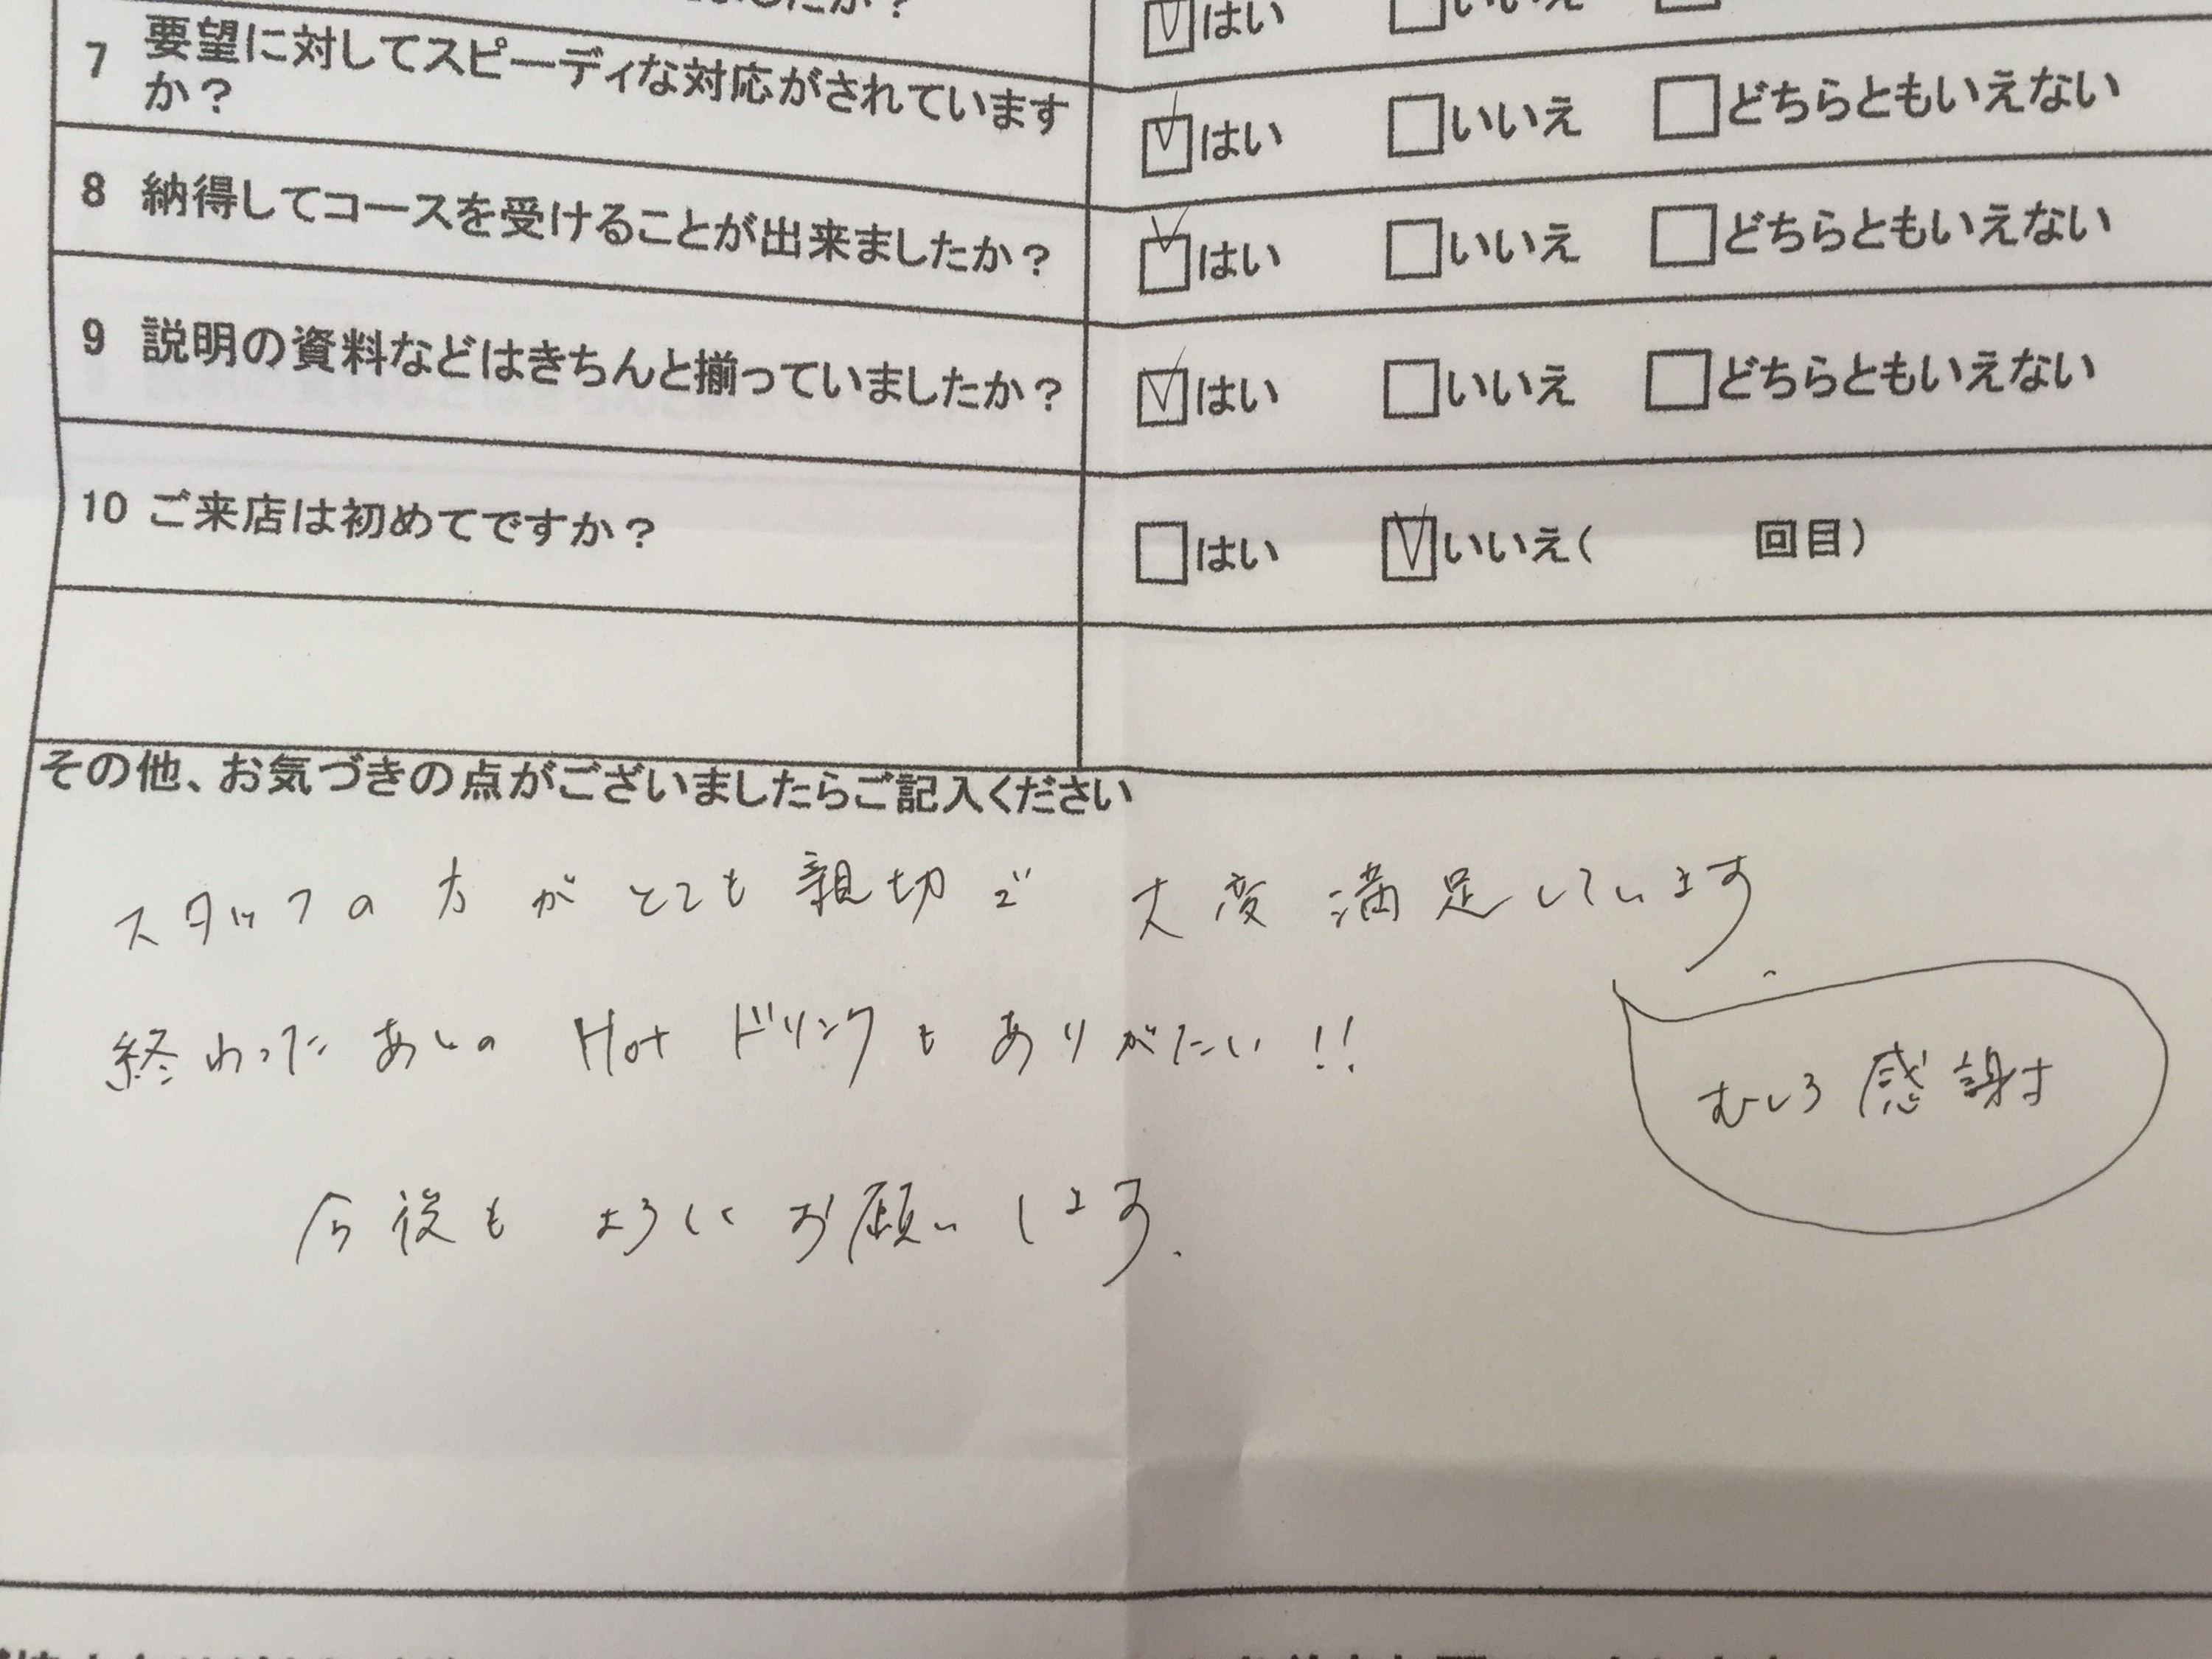 ましたか？ ☑はい □いいえ □
7 要望に対してスピーディな対応がされています
か？ ☑はい □いいえ □どちらともいえない
8 納得してコースを受けることが出来ましたか？ ☑はい □いいえ □どちらともいえない
9 説明の資料などはきちんと揃っていましたか？ ☑はい □いいえ □どちらともいえない
10 ご来店は初めてですか？ □はい ☑いいえ（ 回目）
その他、お気づきの点がございましたらご記入ください
スタッフの方がとても親切で 大変満足しています.
終わったあとの Hot ドリンクもありがたい!!
むしろ感謝
今後も よろしく お願いします.